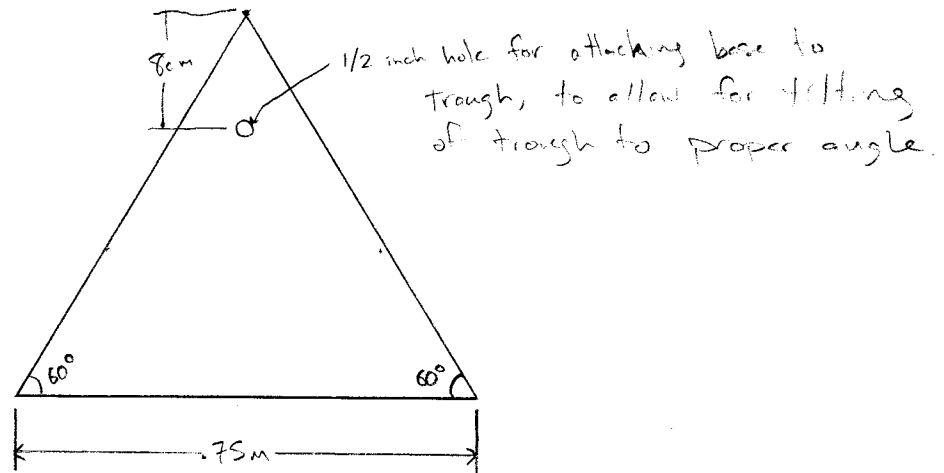 8cm
1/2 inch hole for attaching base to
trough, to allow for tilting
of trough to proper angle.
60°
60°
.75m